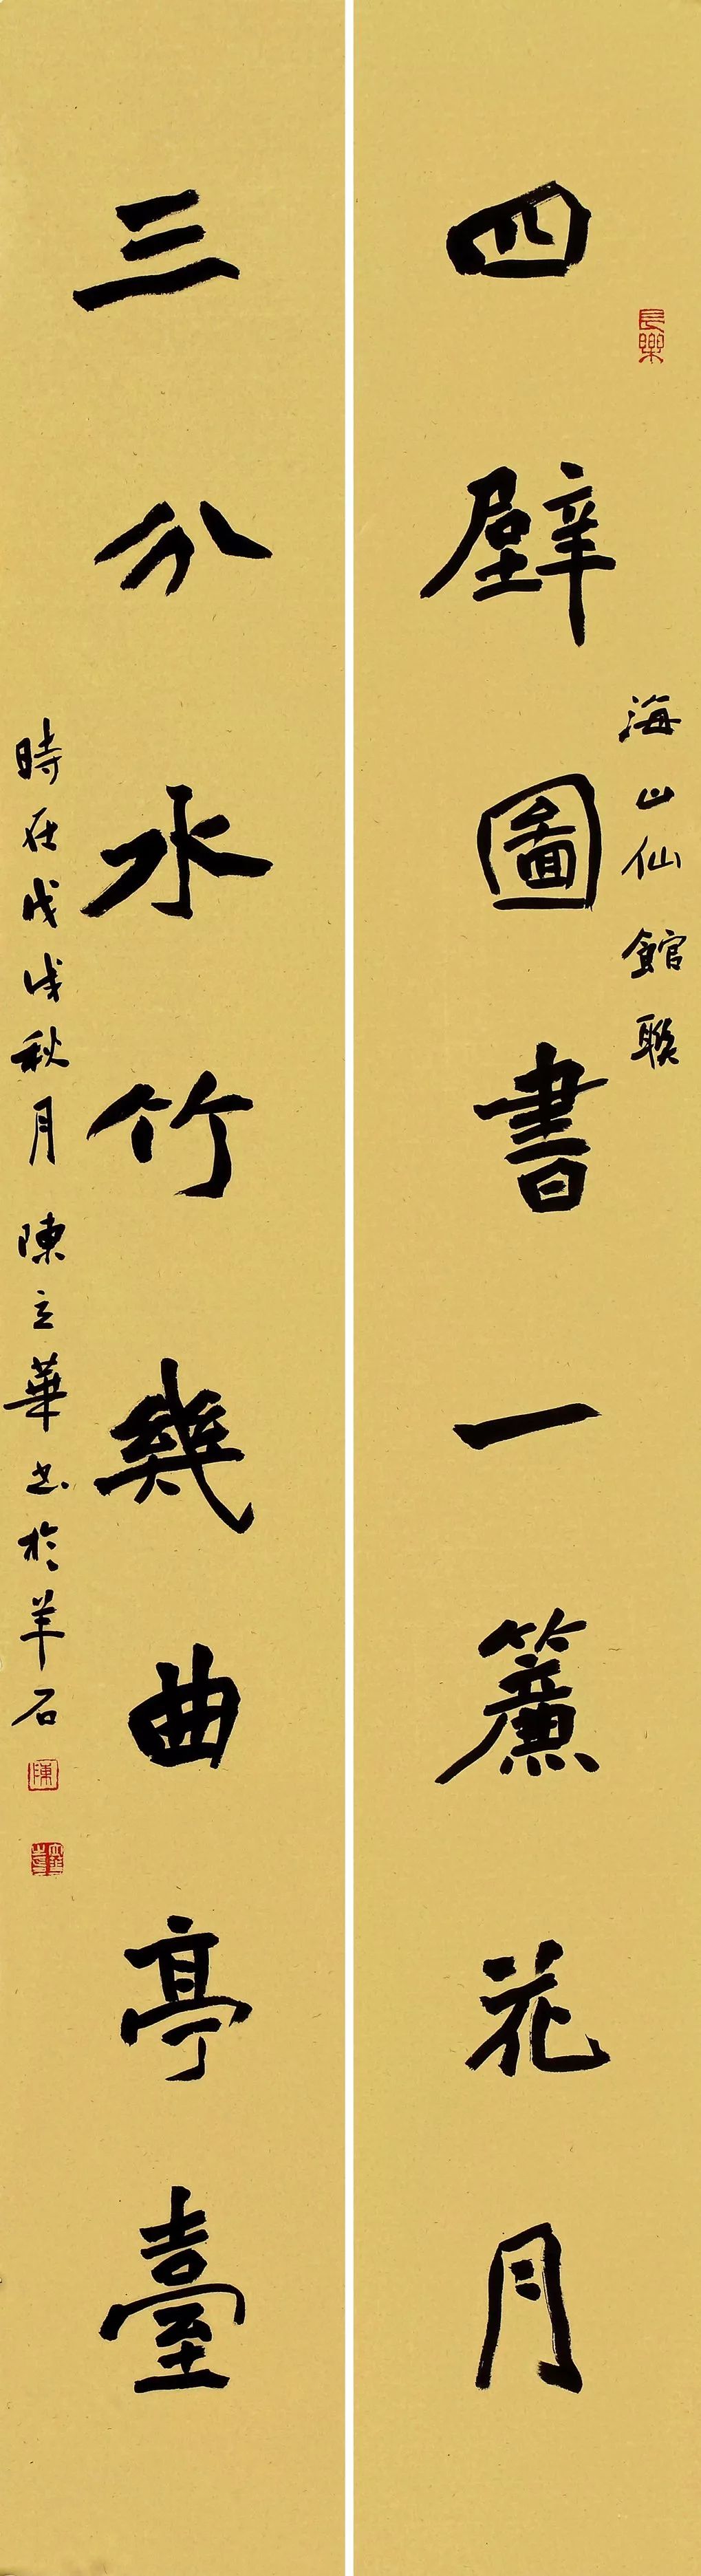 四壁圖書一簾花月
海山仙館聯
長樂
三分水竹幾曲亭臺
時在戊戌秋月陳立華書於羊石
陳